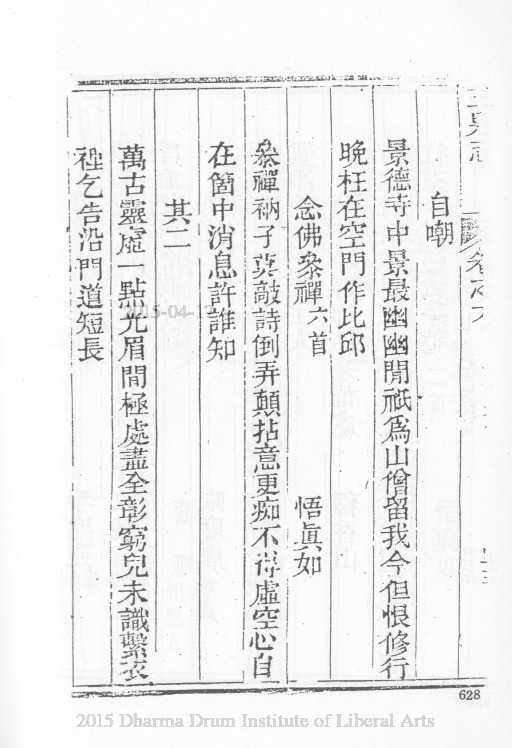 自嘲
景德寺中景最幽幽閒祇爲山僧留我今但恨修行
晚枉在空門作比邱
念佛叅禪六首 悟眞如
叅禪衲子莫敲詩倒弄顛拈意更痴不得虛空心自
在箇中消息許誰知
其二
萬古靈虛一點光眉間極處盡全彰窮兒未識繫衣
裡乞告沿門道短長
628
2015-04-17
2015 Dharma Drum Institute of Liberal Arts